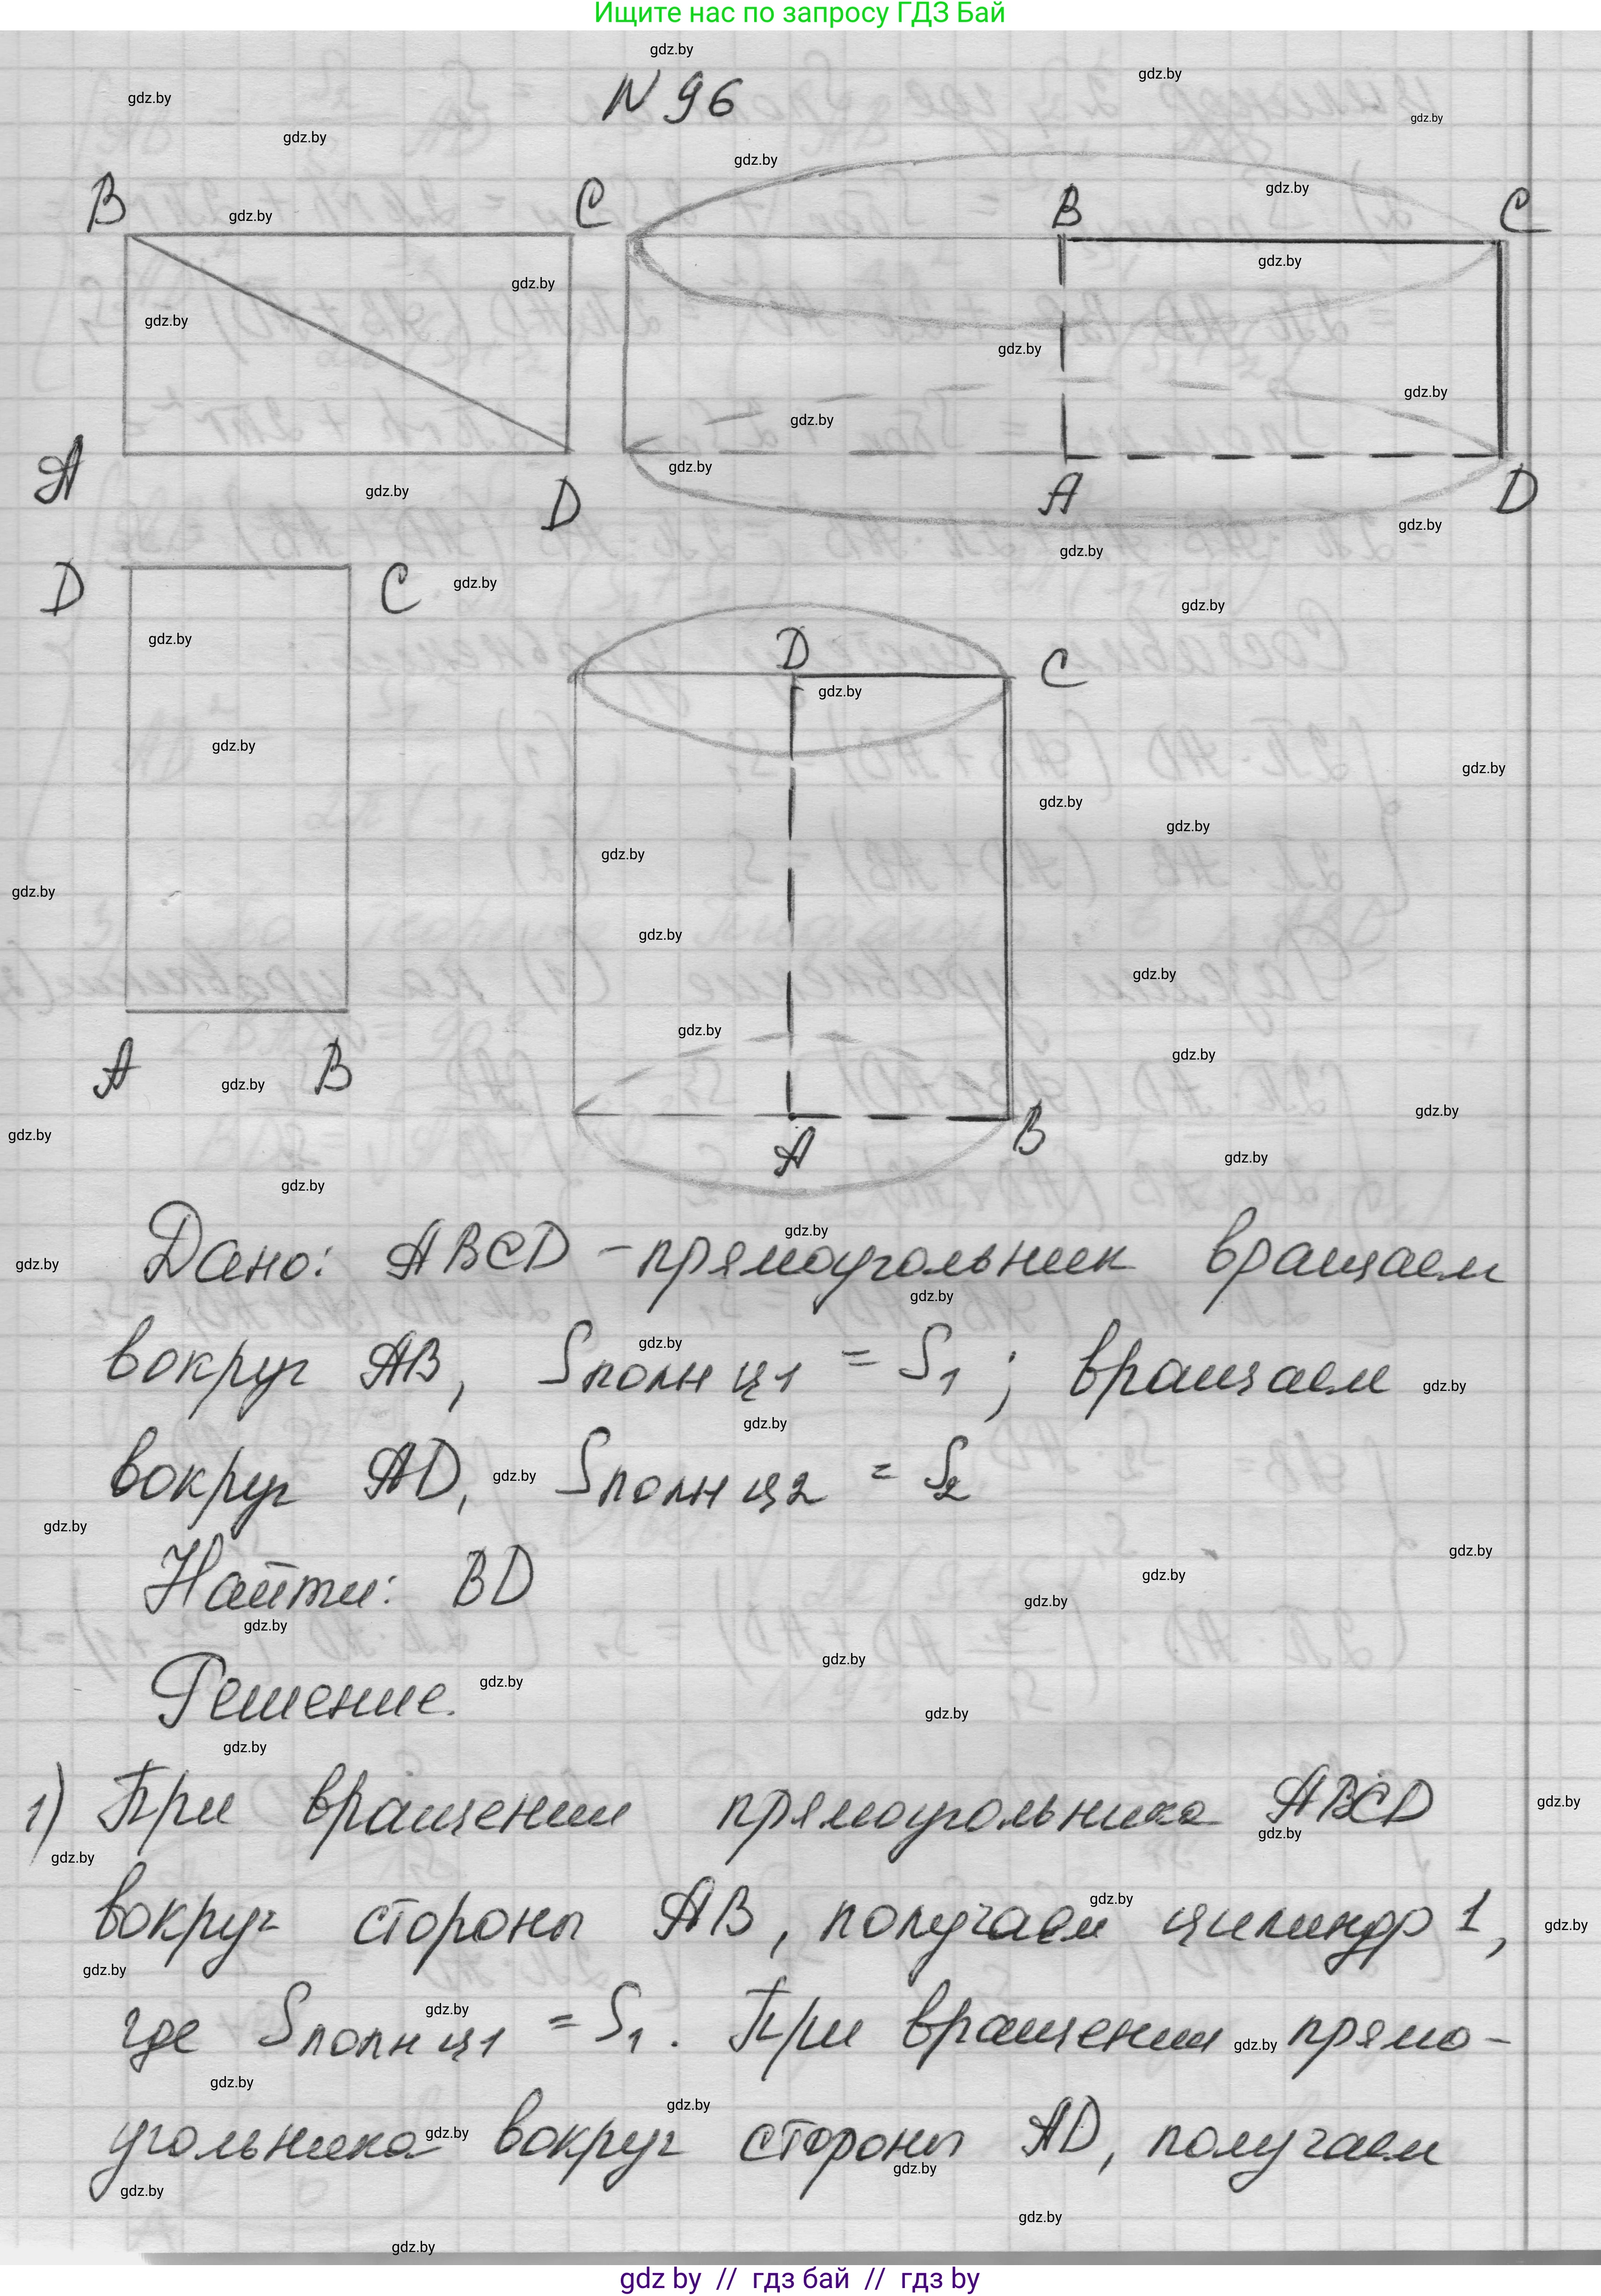 Ищите нас по запросу ГДЗ Бай
N 96
B C B C
A D A D
D C D C
A B A B
Дано: ABCD – прямоугольник вращаем
вокруг AB, Sполн ц1 = S1; вращаем
вокруг AD, Sполн ц2 = S2
Найти: BD
Решение.
1) При вращении прямоугольника ABCD
вокруг стороны AB, получаем цилиндр 1,
где Sполн ц1 = S1. При вращении прямо-
угольника вокруг стороны AD, получаем
gdz by // гдз бай // гдз by